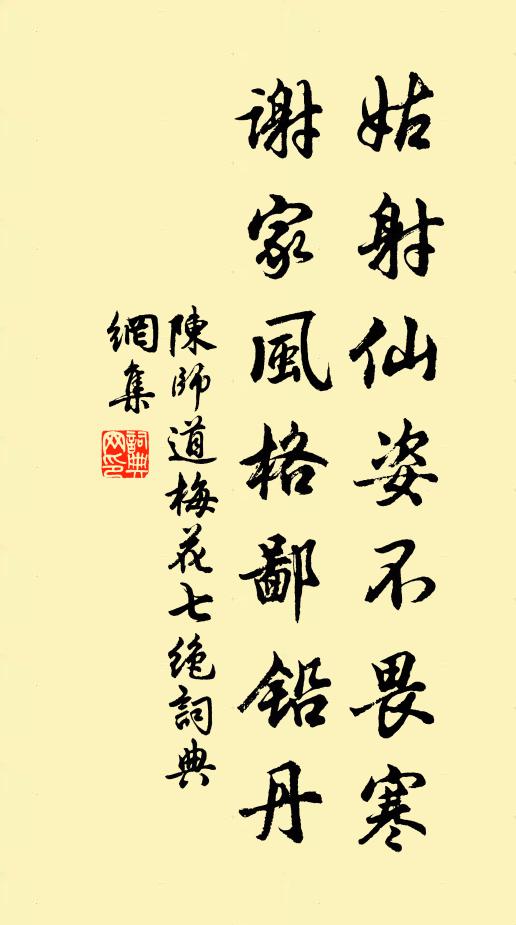 姑射仙姿不畏寒
谢家風格鄙铅丹
陳師道梅花七绝詞典
網集
詞典
网印